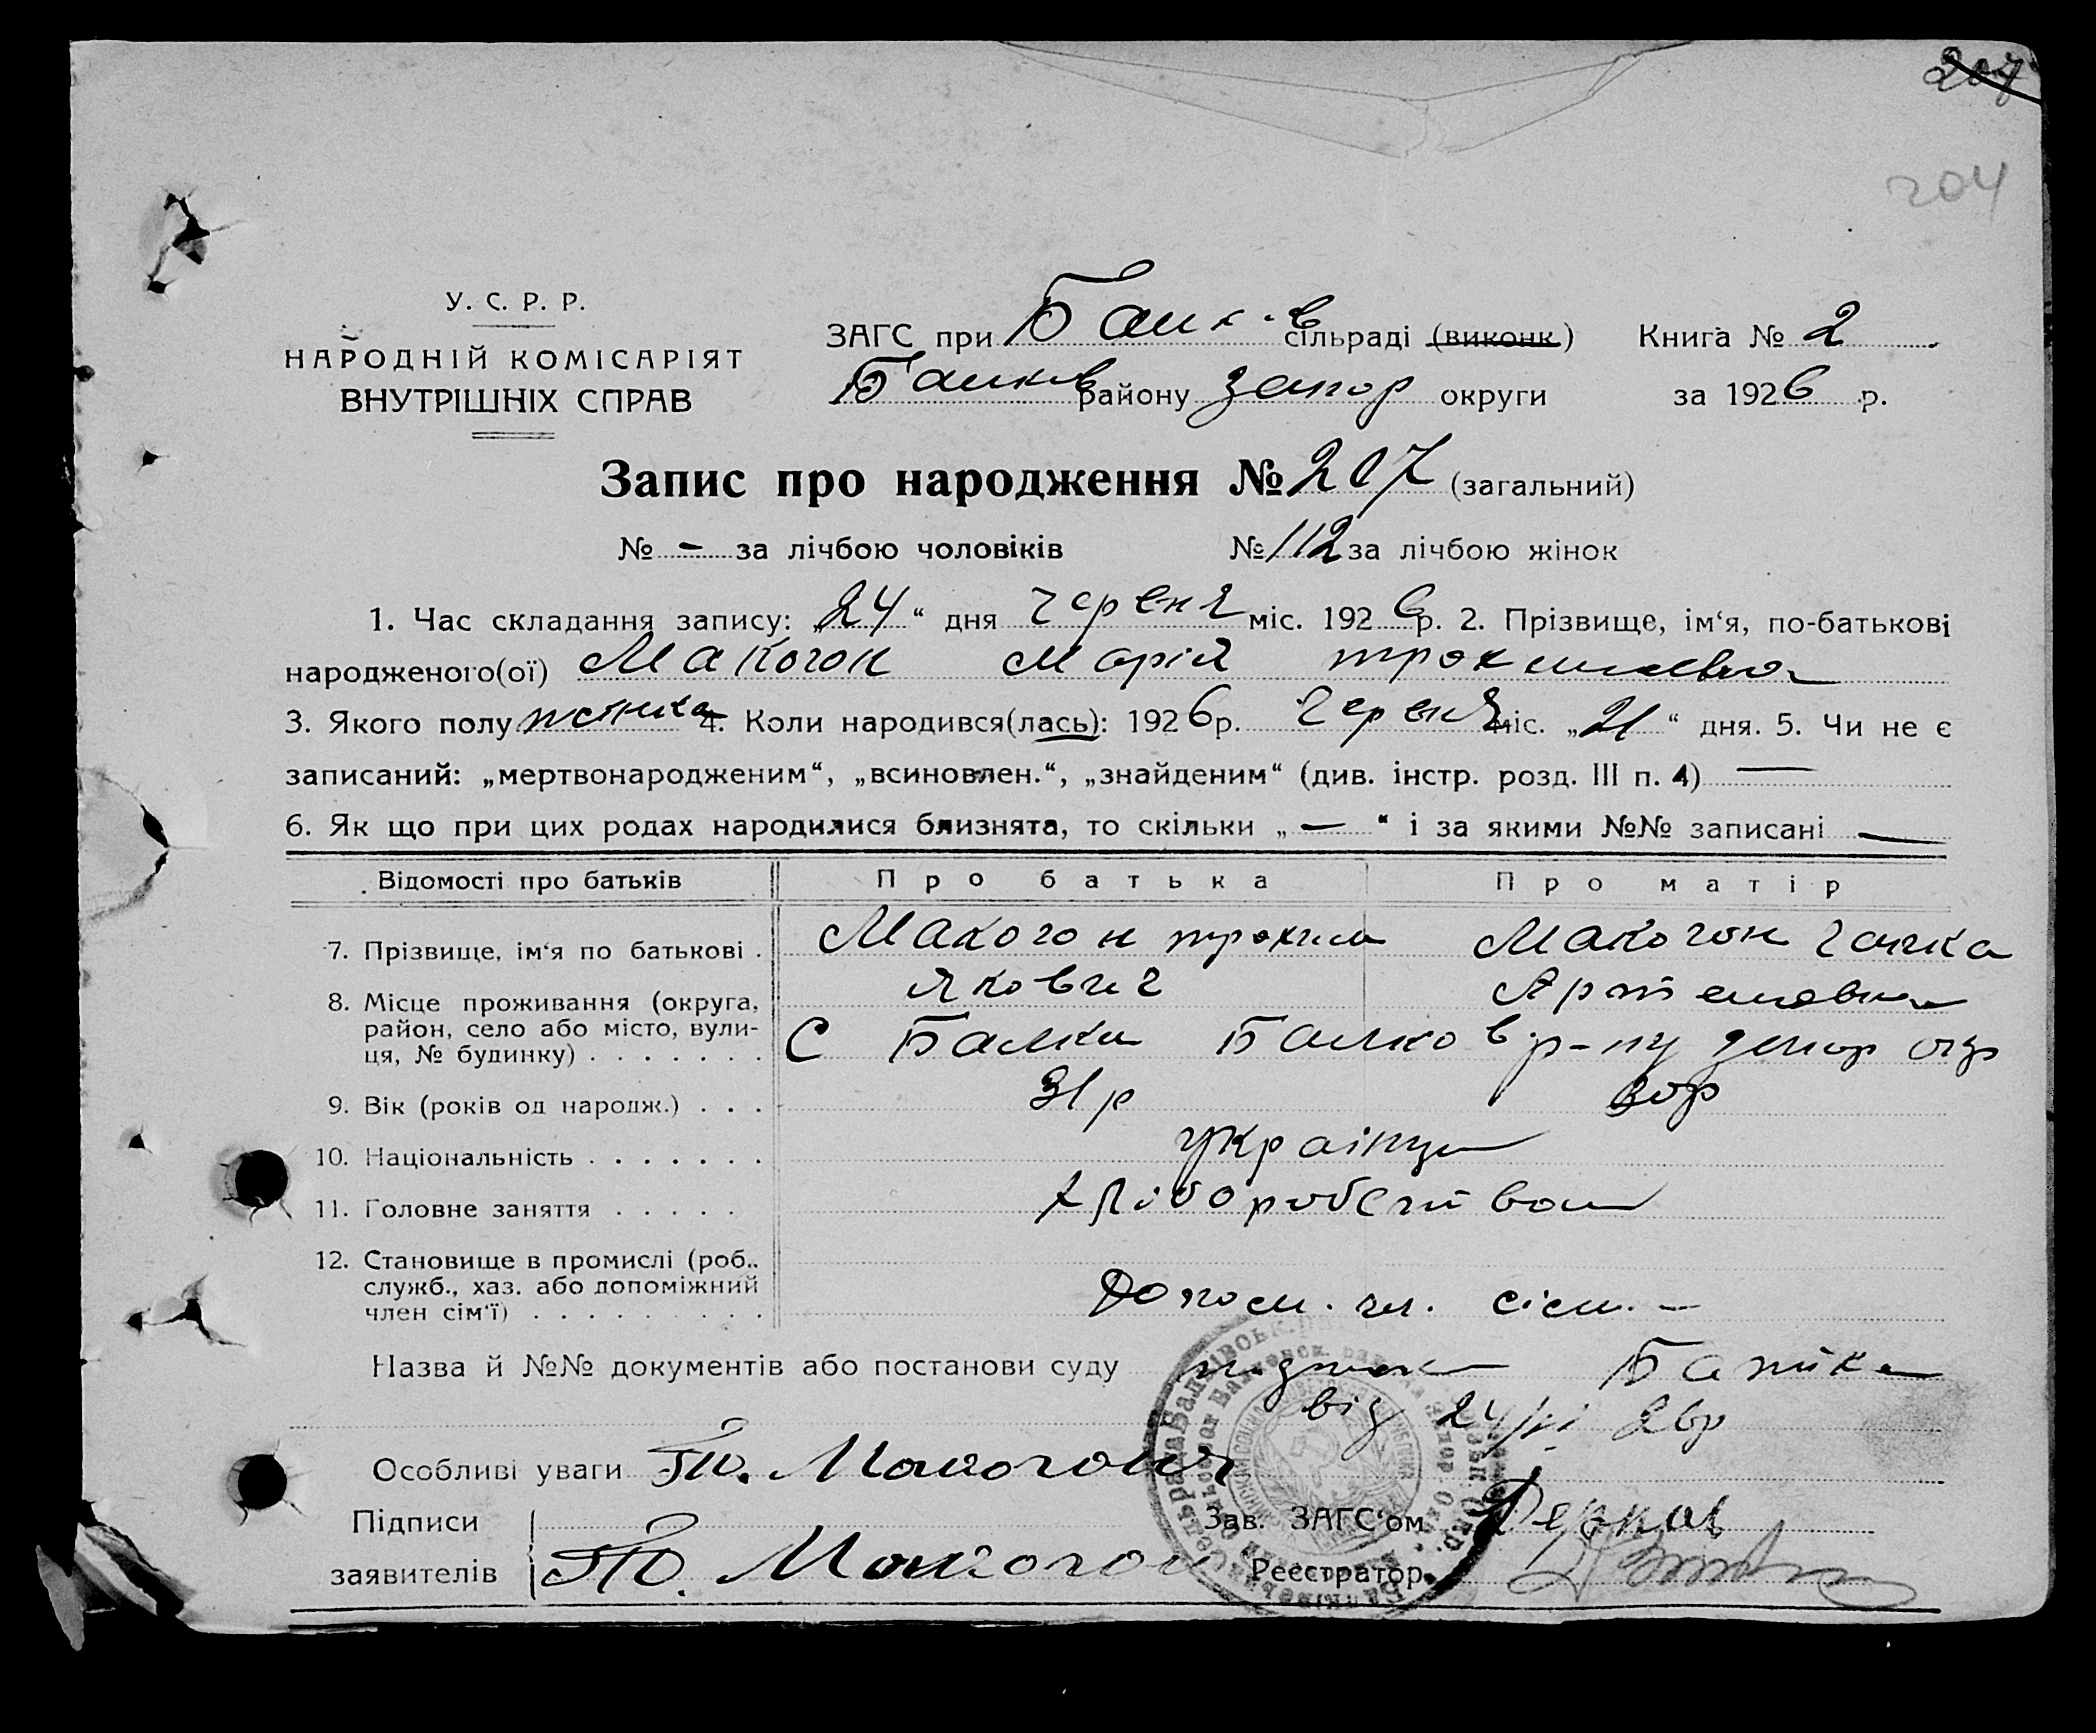 207
204
У. С. Р. Р.
НАРОДНІЙ КОМІСАРІЯТ
ВНУТРІШНІХ СПРАВ
ЗАГС при Балк-в сільраді (виконк) Книга № 2
Балків району Запор округи за 1926 р.
Запис про народження № 207 (загальний)
№ - за лічбою чоловіків № 112 за лічбою жінок
1. Час складання запису: „24“ дня Червня міс. 1926 р. 2. Прізвище, ім‘я, по-батькові
народженого(ої) Макогон Марія Трохимовна
3. Якого полу жінка 4. Коли народився(лась): 1926 р. Червня міс. „21“ дня. 5. Чи не є
записаний: „мертвонародженим“, „всиновлен.“, „знайденим“ (див. інстр. розд. III п. 4) —
6. Як що при цих родах народилися близнята, то скільки „—“ і за якими №№ записані —
Відомості про батьків Про батька Про матір
7. Прізвище, ім‘я по батькові . Макогон Трохим Макогон
Якович Артемовна
8. Місце проживання (округа,
район, село або місто, вули-
ця, № будинку) . . . . . . . С Балки Балков р-ну Запор окр
9. Вік (років од народж.) . . . 31 р 30 р
10. Національність . . . . . . . українці
11. Головне заняття . . . . . Хліборобством
12. Становище в промислі (роб.,
служб., хаз. або допоміжний
член сім‘ї) . . . . . . . . . Допом. чл. сім. -
Назва й №№ документів або постанови суду Батька
від 24/VI 26р
Особливі уваги Макогон
Підписи
заявителів Макогон
Зав. ЗАГС‘ом
Реєстратор